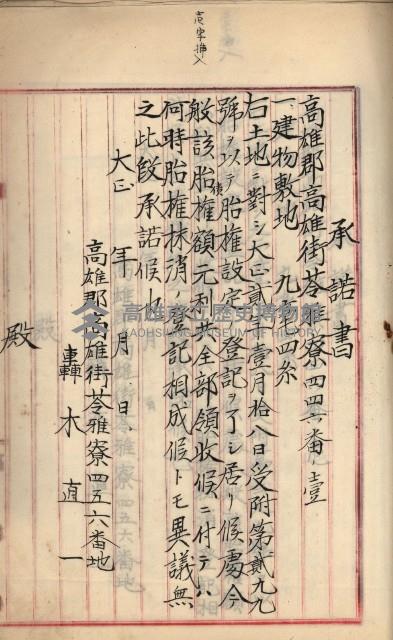 高字挿入
承諾書
高雄郡高雄街苓雅寮四四六番ノ壹
一、建物敷地 九厘四糸
右土地ニ對シ大正貳年壹月拾八日受附第貳九九
號ヲ以テ胎權設定ノ登記ヲ了シ居リ候處今
般該胎權額元利共全部領收候ニ付テハ
何時胎権抹消ノ登記相成候トモ異議無
之此段承諾候也
大正 年 月 日
高雄郡高雄街苓雅寮四五六番地
轟木直一
殿
高雄市立歷史博物館
KAOHSIUNG MUSEUM OF HISTORY